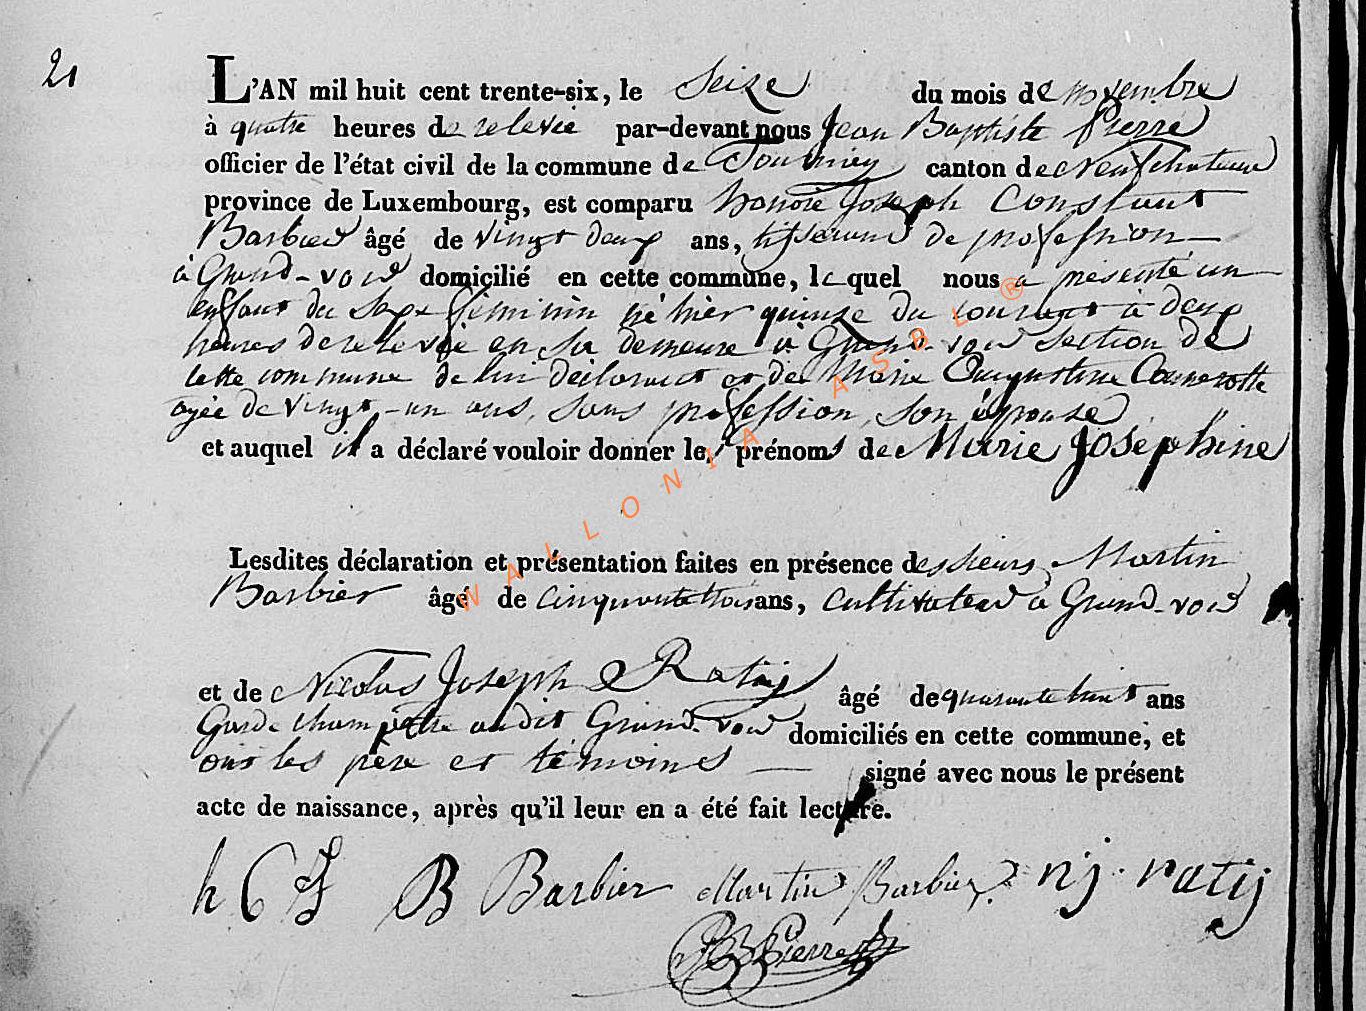 21
L'AN mil huit cent trente-six, le Seize du mois de novembre
à quatre heures de relevée par-devant nous Jean Baptiste Pierre
officier de l'état civil de la commune de Tournay canton de Neufchateau
province de Luxembourg, est comparu honoré Joseph Constant
Barbier âgé de vingt deux ans, tisserand de profession
à Grand-voir domicilié en cette commune, le quel nous a présenté un
enfant du Sexe féminin né hier quinze du courant à deux
heures de relevée en sa demeure à Grand-voir section de
cette commune de lui déclarant et de Marie Augustine
agée de vingt-un ans, sans profession, son épouse
et auquel il a déclaré vouloir donner les prénoms de Marie Joséphine
Lesdites déclaration et présentation faites en présence des sieurs Martin
Barbier âgé de cinquante trois ans, cultivateur à Grand-voir
et de Nicolas Joseph Ratij âgé de quarante huit ans
Garde champêtre audit Grand-voir domiciliés en cette commune, et
ont les père et témoins signé avec nous le présent
acte de naissance, après qu'il leur en a été fait lecture.
h C J B Barbier Martin Barbier nj. ratij
JB Pierre
WALLONIA ASBL ®